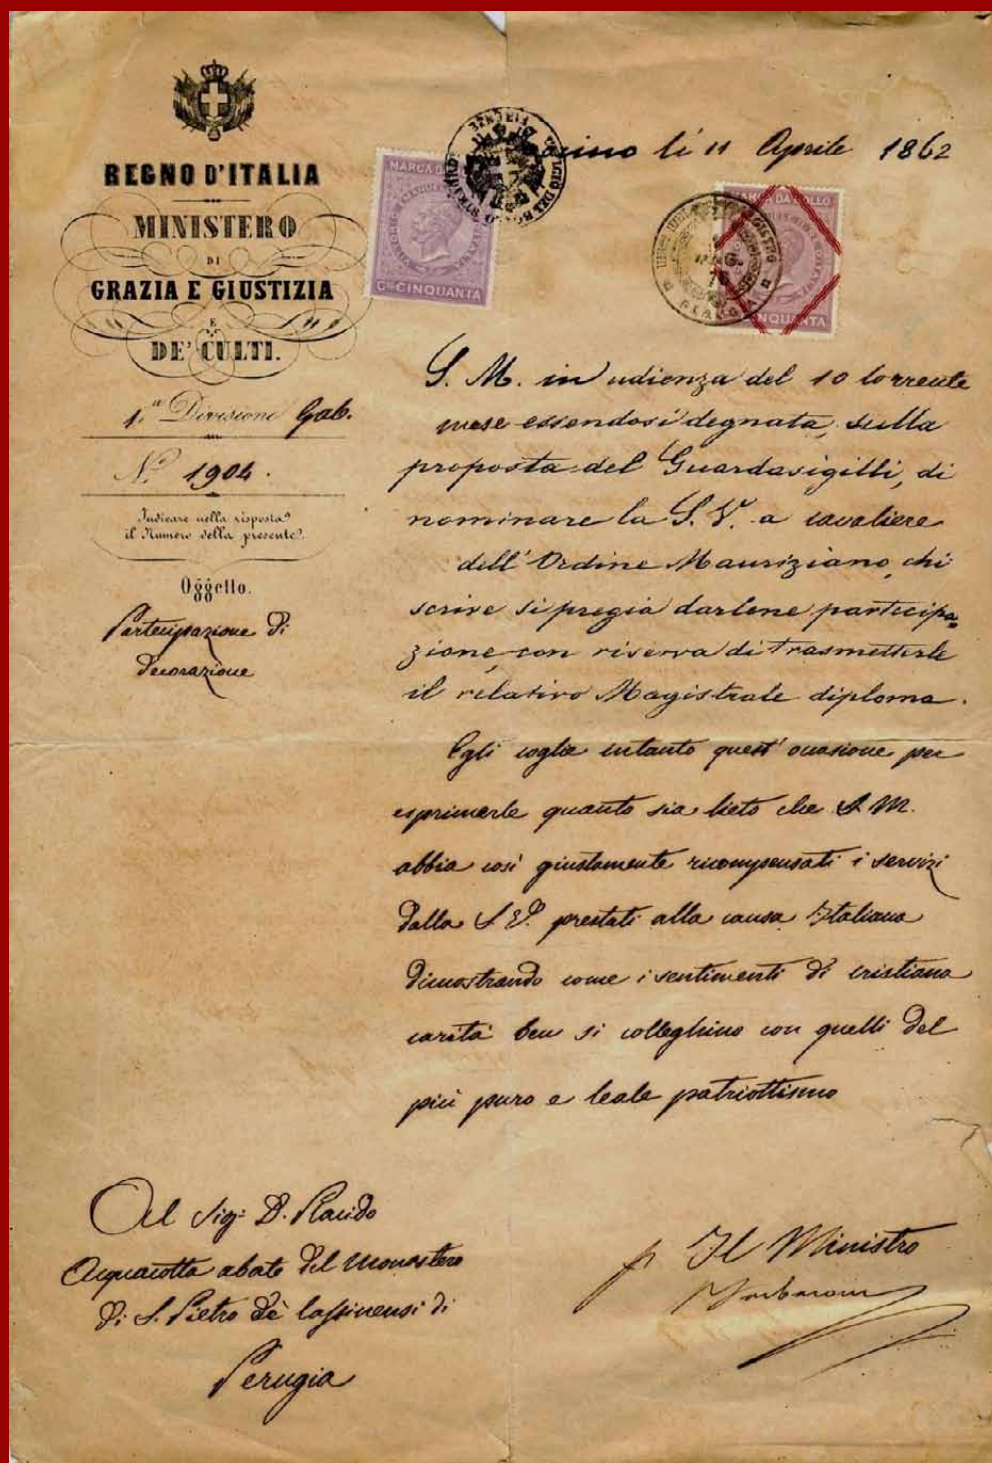 REGNO D'ITALIA
MINISTERO
DI
GRAZIA E GIUSTIZIA
E
DE' CULTI.
1.ª Divisione Gab.
N.º 1904.
Indicare nella risposta
il Numero della presente.
Oggetto.
Partecipazione di
decorazione
Torino li 11 Aprile 1862
MARCA D
Ct. CINQUANTA
MARCA DA BOLLO
CINQUANTA
PERUGIA
S. M. in udienza del 10 corrente
mese essendosi degnata, sulla
proposta del Guardasigilli, di
nominare la S. V. a cavaliere
dell'Ordine Mauriziano, chi
scrive si pregia darlene partecipa-
zione, con riserva di trasmetterle
il relativo Magistrale diploma.
Egli coglie intanto quest'occasione per
esprimerle quanto sia lieto che S. M.
abbia così giustamente ricompensati i servizi
dalla S. V. prestati alla causa Italiana
dimostrando come i sentimenti di cristiana
carità ben si colleghino con quelli del
più puro e leale patriottismo
Al Sig: D. Placido
Acquacotta abate del monastero
di S. Pietro de' Cassinensi di
Perugia
p. Il Ministro